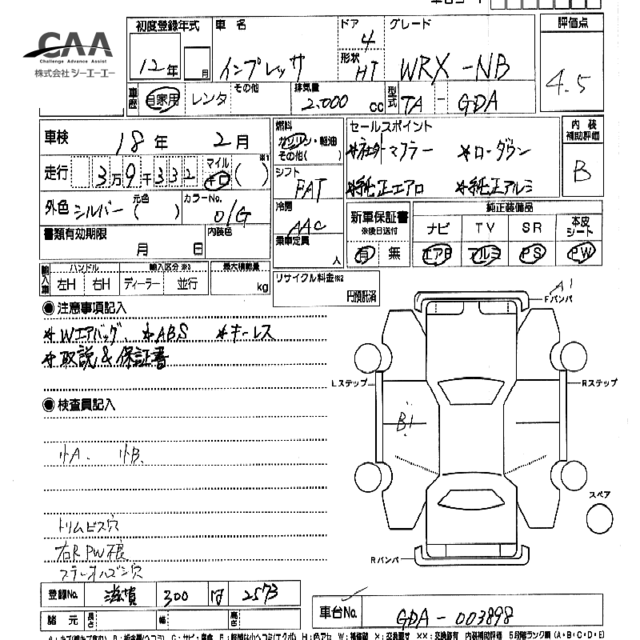 CAA
Challenge Advance Assist
株式会社 シーエーエー
初度登録年式 車名 ドア グレード 評価点
12年 月 インプレッサ 4 形状 HT WRX-NB 4.5
車歴 自家用 レンタ その他 排気量 2.000 cc 型式 TA - GDA
車検 18年 2月 燃料 ガソリン・軽油 その他( ) セールスポイント 内装補助評価
*社外マフラー *ローダウン B
走行 3万9千332 マイル キロ ( ) ※1 シフト FAT *純正エアロ *純正アルミ
外色 シルバー 元色 ( ) カラーNo. 01G 冷房 AAC 新車保証書 ※後日送付 純正装備品
ナビ TV SR 本皮シート
書類有効期限 月 日 内装色 乗車定員 人 有 無 エアB アルミ PS PW
輸入車 ハンドル 輸入区分 ※2 最大積載量 リサイクル料金 ※2
左H 右H ディーラー 並行 kg 円預託済
◉注意事項記入
*Wエアバッグ、 *ABS *キーレス
*取説&保証書
A1
Fバンパ
Lステップ Rステップ
◉検査員記入
B1
小A. 小B.
スペア
トリムビス穴
右R PW
Rバンパ
登録No. 滋賀 300 2573
諸元 長さ 幅 高さ
車台No. GDA-003898